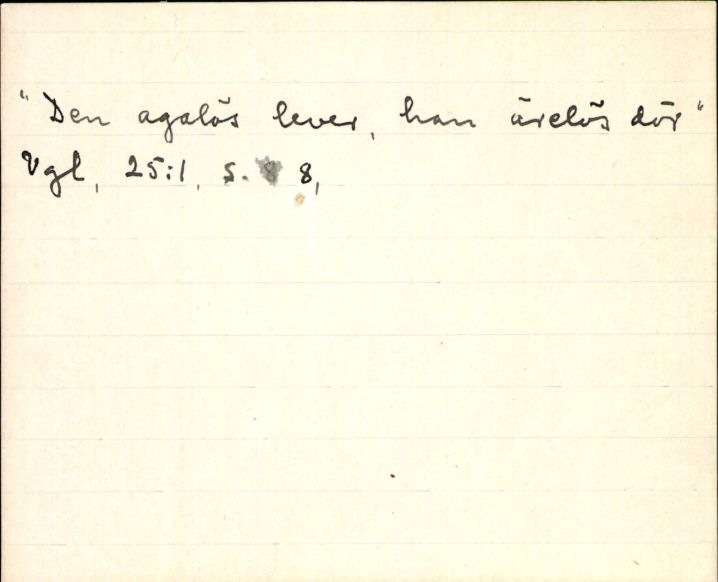 "Den agalös lever, han ärelös dör"
Vgl, 25:1, s. 8 8,